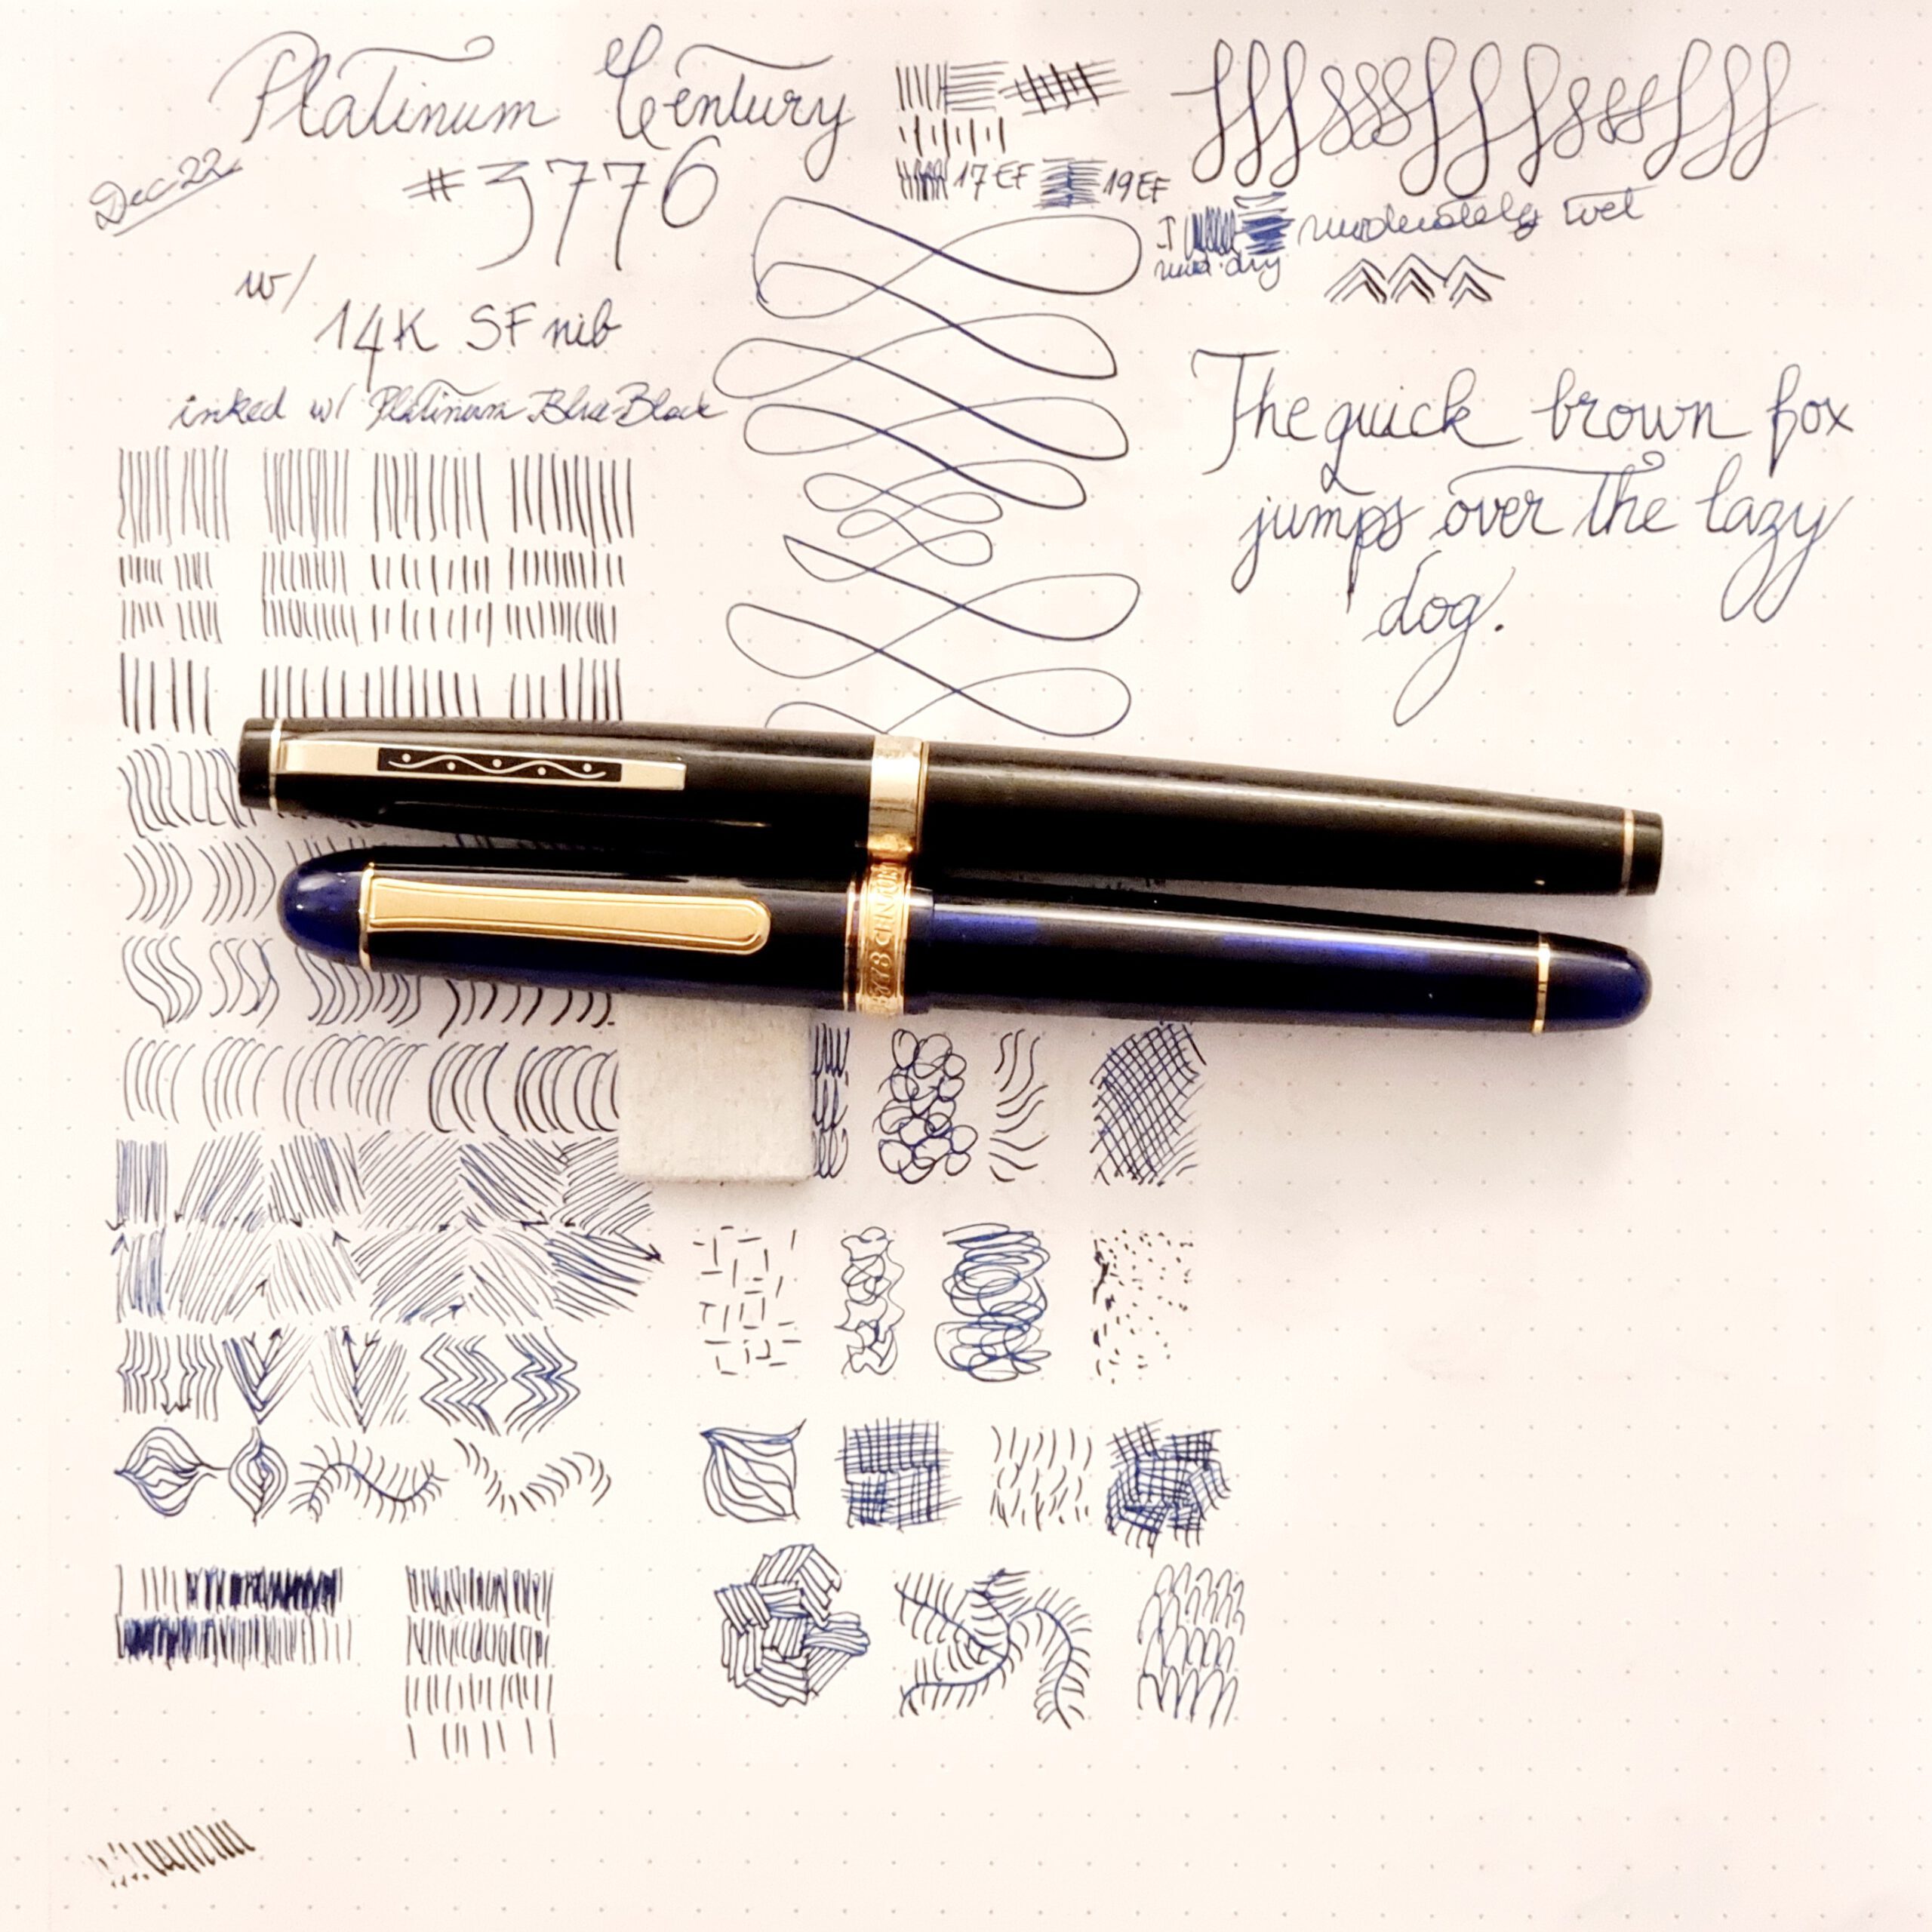 Platinum Century
#3776
Dec 22
w/
14K SF nib
inked w/ Platinum Blue-Black
17 EF
19 EF
moderately wet
The quick brown fox
jumps over the lazy
dog.
3776 CENTURY